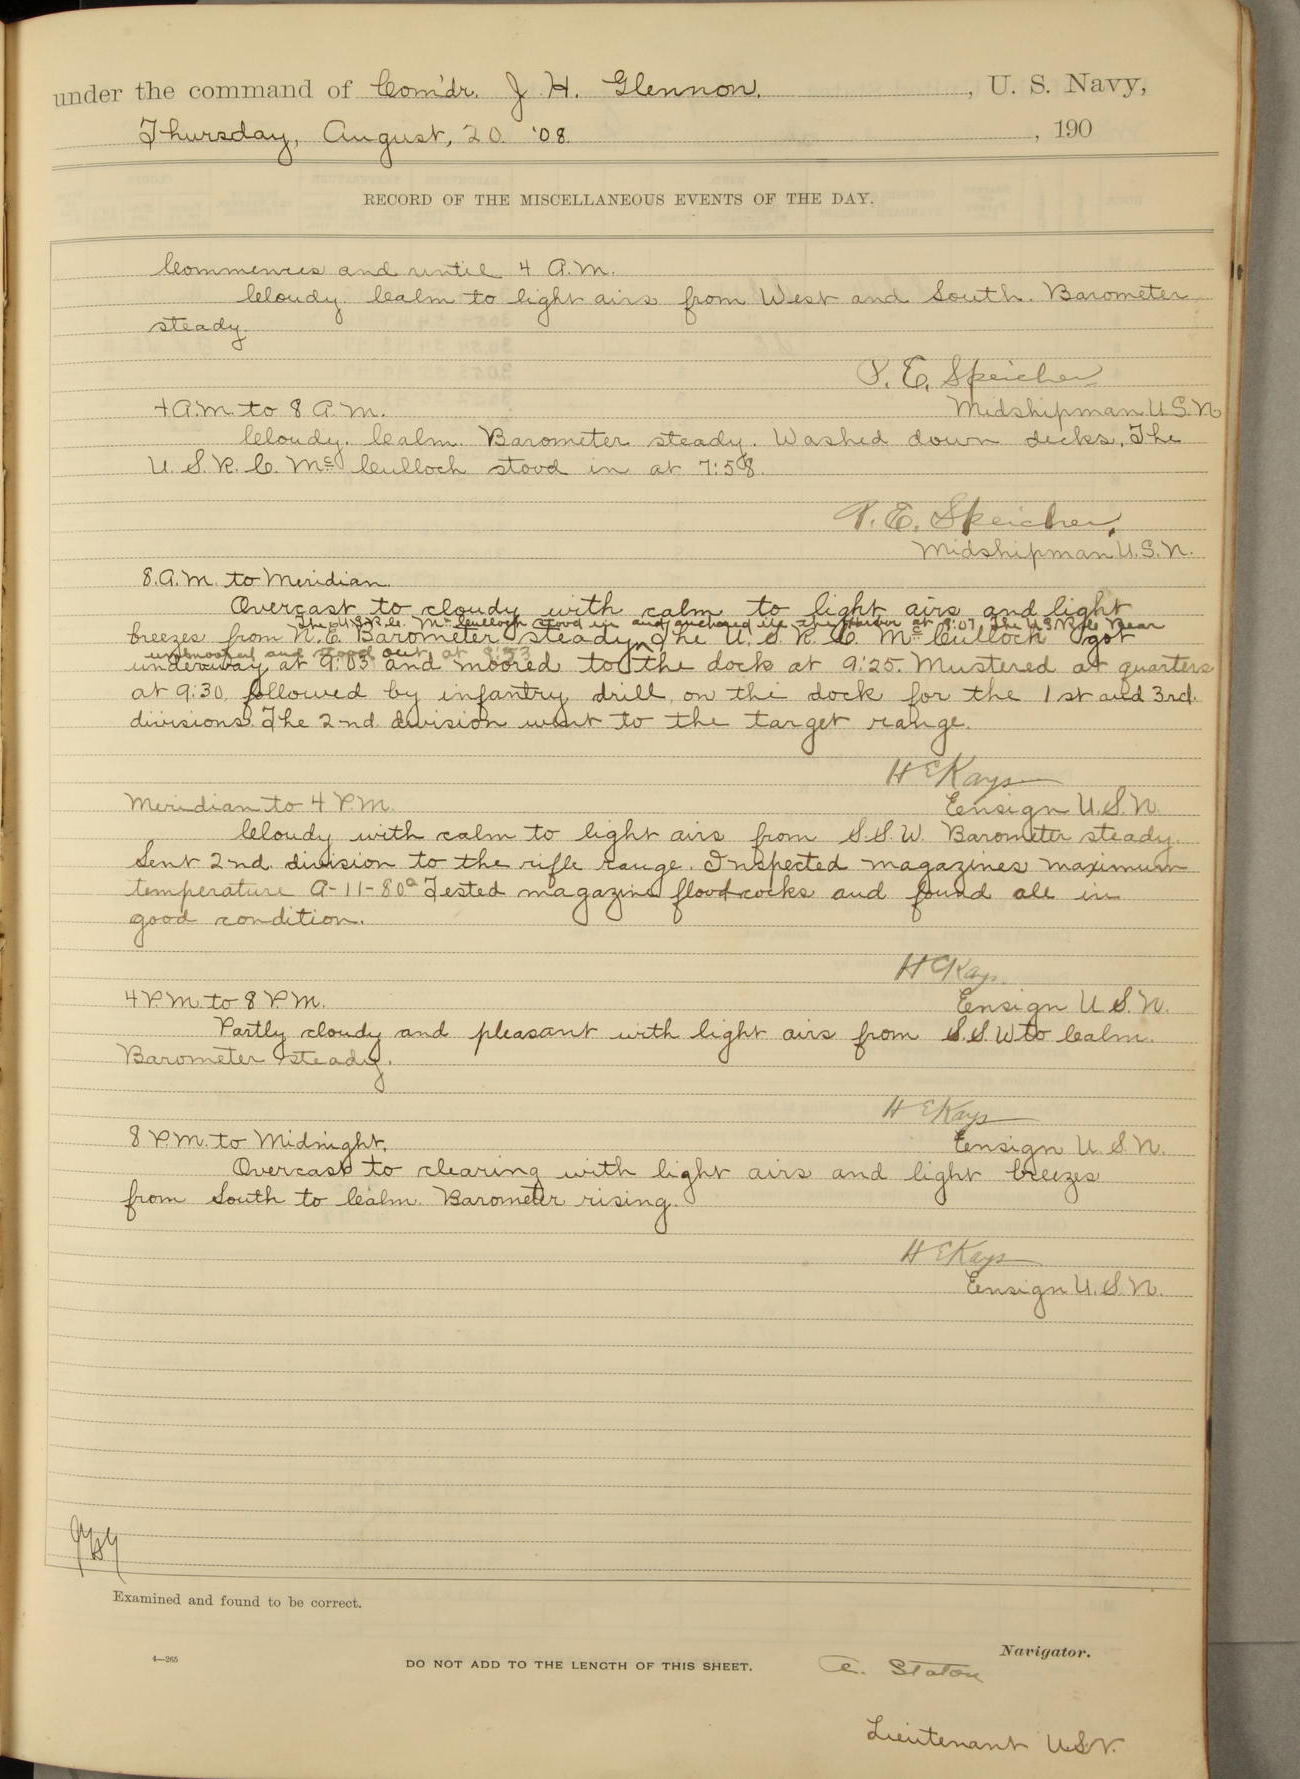 under the command of Com'dr. J. H. Glennon., U. S. Navy,
Thursday, August, 20. '08., 190
RECORD OF THE MISCELLANEOUS EVENTS OF THE DAY.
Commences and until 4 A.M.
Cloudy. Calm to light airs from West and South. Barometer
steady.
P. E. Speicher
4 A.M. to 8 A.M. Midshipman U.S.N
Cloudy. Calm. Barometer steady. Washed down decks. The
U. S. R. C. Mc Culloch stood in at 7:58.
P. E. Speicher.
Midshipman U.S.N.
8. A.M. to Meridian.
Overcast to cloudy with calm to light airs and light
The U.S.R.C. Mc Culloch stood in and anchored in the harbor at 8:07. The U.S.R.C. Bear
breezes from N. E. Barometer steady. The U. S. R. C. Mc Cullock got
unmoored and stood out at 8:53
underway at 9:03 and moored to the dock at 9:25. Mustered at quarters
at 9:30, followed by infantry drill on the dock for the 1st and 3rd.
divisions. The 2nd. division went to the target range.
H E Kays
Meridian to 4 P.M. Ensign U.S.N.
Cloudy with calm to light airs from S.S.W. Barometer steady.
Sent 2nd. division to the rifle range. Inspected magazines maximum
temperature A-11-80° Tested magazine floodcocks and found all in
good condition.
H E Kays
4 P.M. to 8 P.M. Ensign U.S.N.
Partly cloudy and pleasant with light airs from S.S.W to Calm.
Barometer steady.
H E Kays
8 P.M. to Midnight. Ensign U.S.N.
Overcast to clearing with light airs and light breezes
from South to Calm. Barometer rising.
H E Kays
Ensign U.S.N.
Examined and found to be correct.
4—265
DO NOT ADD TO THE LENGTH OF THIS SHEET.
Navigator.
A. Staton
Lieutenant U.S.N.